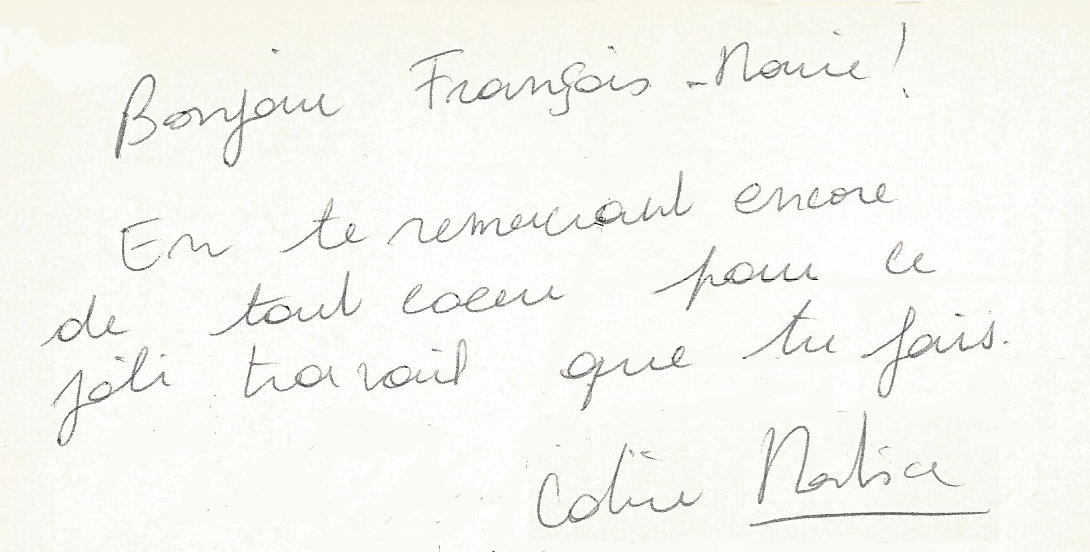 Bonjour François-Marie!
En te remerciant encore
de tout coeur pour ce
joli travail que tu fais.
Coline